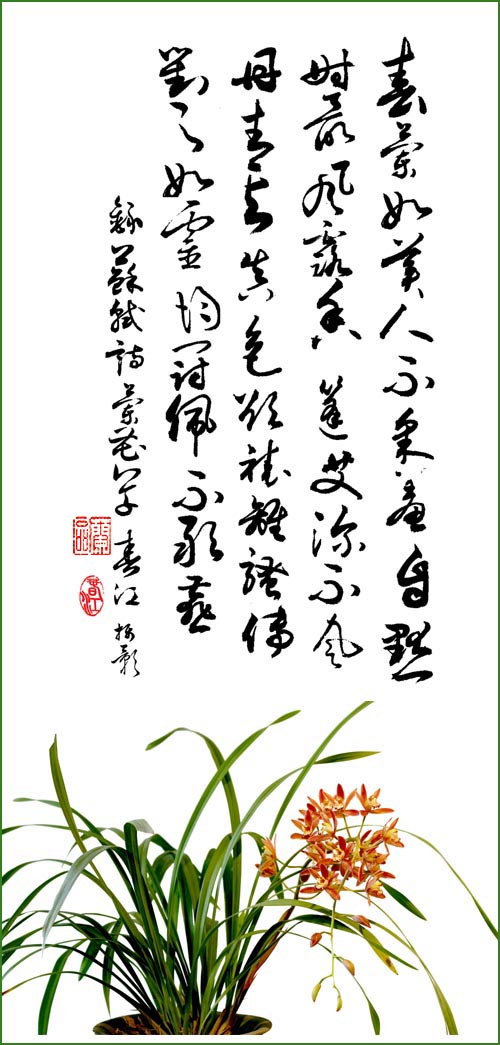 春蘭如美人不采羞自獻
時聞風露香蓬艾深不見
丹青寫真色欲補離騷傳
對之如靈均冠佩不敢燕
錄蘇軾詩蘭花 春江
春江